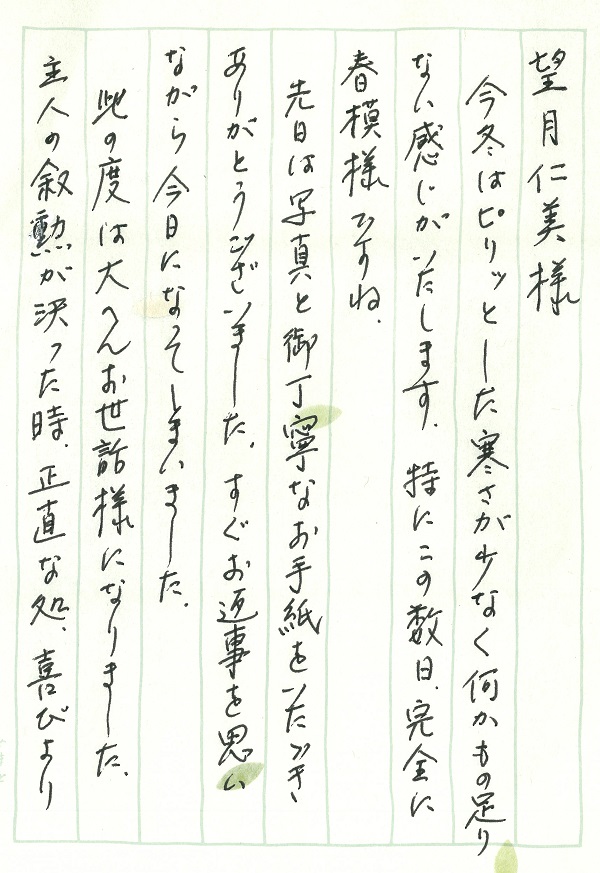 望月仁美様
今冬はピリッとした寒さが少なく何かもの足り
ない感じがいたします。特にこの数日、完全に
春模様ですね。
先日は写真と御丁寧なお手紙をいただき
ありがとうございました。すぐお返事を思い
ながら今日になってしまいました。
此の度は大へんお世話様になりました。
主人の叙勲が決った時、正直な処、喜びより